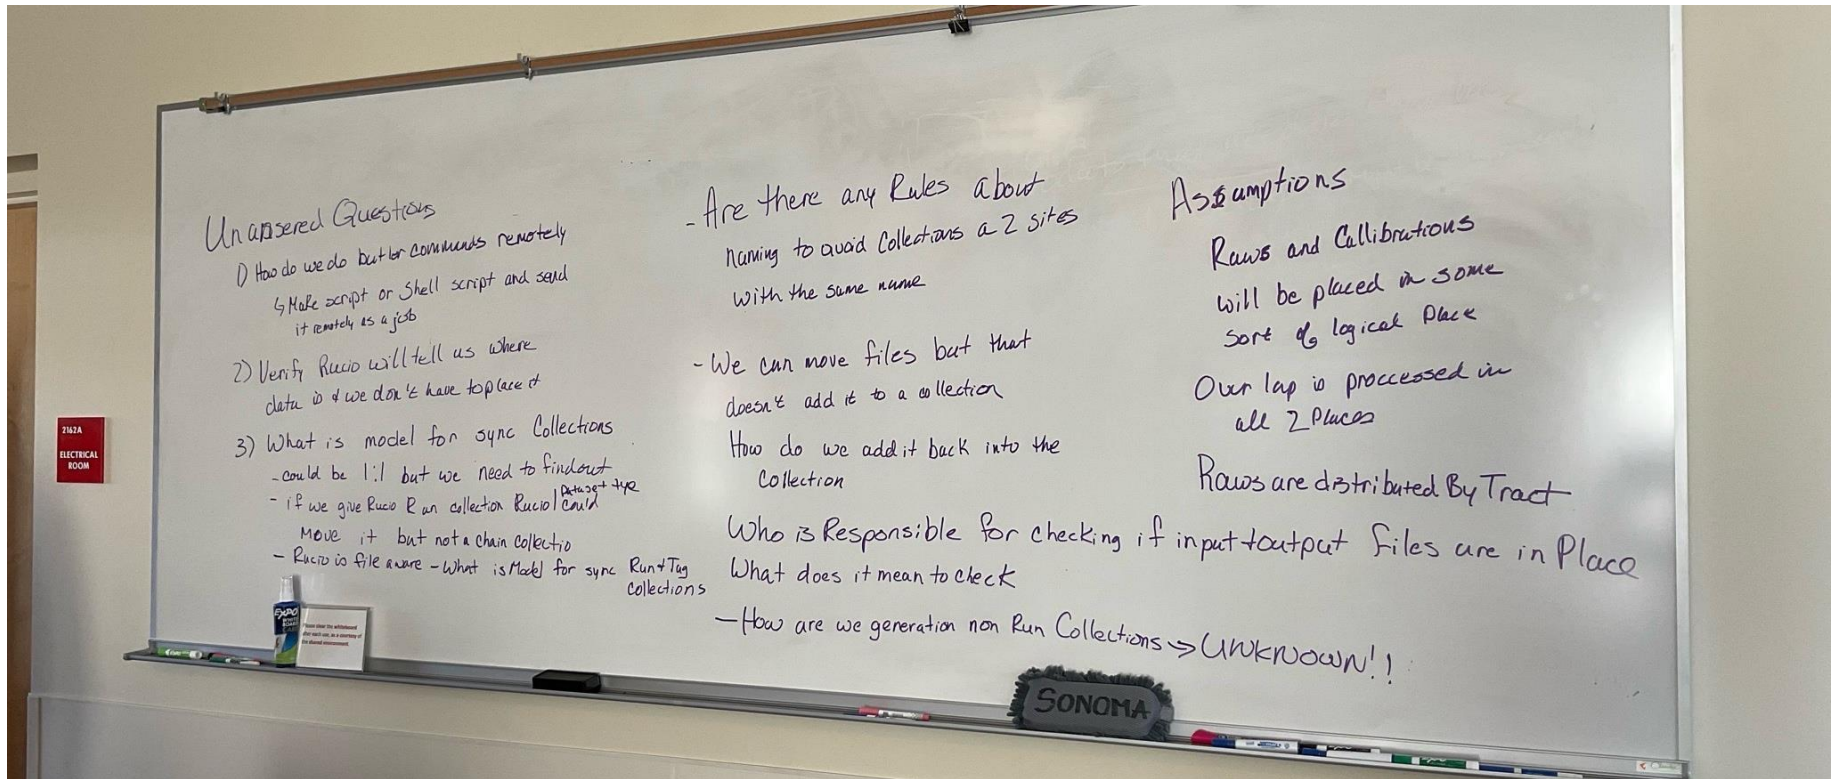 Unansered Questions
1) How do we do butler commands remotely
↳ Make script or Shell script and send
it remotely as a job
2) Verify Rucio will tell us where
data is & we don't have to place it
3) What is model for sync Collections
- could be 1:1 but we need to find out
- if we give Rucio Run collection Rucio could
Dataset type
Move it but not a chain collectio
- Rucio is file aware - What is Model for sync Run + Tag
Collections
- Are there any Rules about
naming to avoid Collections a 2 sites
with the same name
- We can move files but that
doesn't add it to a collection
How do we add it back into the
Collection
Who is Responsible for checking if input + output files are in Place
What does it mean to check
- How are we generation non Run Collections → UNKNOWN!!
Assumptions
Raws and Callibrations
will be placed in some
sort of logical Place
Over lap is proccessed in
all 2 Places
Raws are distributed By Tract
2162A
ELECTRICAL
ROOM
EXPO
WHITE
BOARD
Please clear the whiteboard
after each use, as a courtesy of
the shared environment.
SONOMA